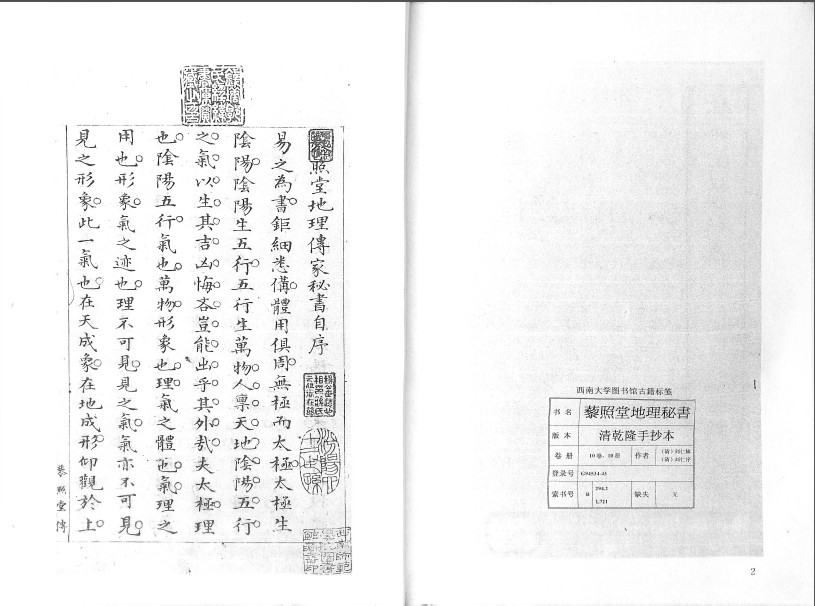 照堂地理傳家秘書自序
易之為書鉅細悉備體用俱周無極而太極太極生
陰陽陰陽生五行五行生萬物人禀天地陰陽五行
之氣以生其吉凶悔吝豈能出乎其外哉夫太極理
也陰陽五行氣也萬物形象也理氣之體也氣理之
用也形象氣之迹也理不可見見之氣氣亦不可見
見之形象此一氣也在天成象在地成形仰觀於上
藜照堂傳
西南大学图书馆古籍标签
书名 藜照堂地理秘書
版本 清乾隆手抄本
卷册 10卷，10册 作者 （清） （清）
登录号
索书号 B 294.2 L721 缺失 无
2